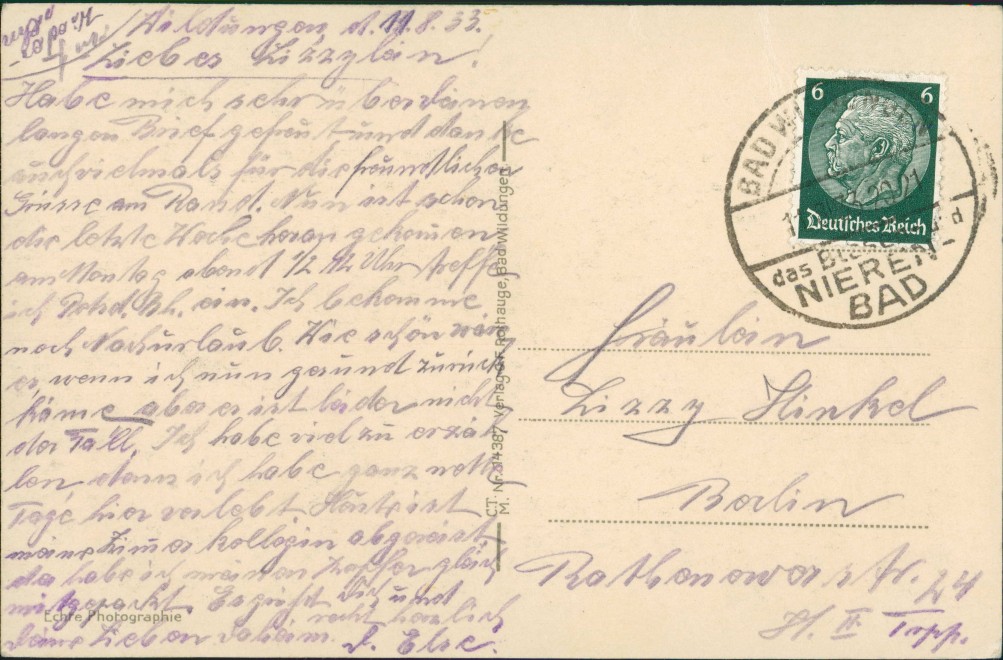 Wildungen, d. 11.8.33.
Liebes Lizzylein!
Habe mich sehr über deinen
langen Brief gefreut und danke
auch vielmals für die freundlichen
Grüsse am Rand. Nun ist schon
die letzte Woche heran gekommen
am Montag abend 1/2 12 Uhr treffe
ich Potsd. Bh. ein. Ich bekomme
noch Nachurlaub. Wie schön wäre
es, wenn ich nun gesund zurück
käme, aber es ist leider nicht
der Fall. Ich habe viel zu erzäh
len, denn ich habe ganz nette
Tage hier verlebt. Heute ist
meine Zimmer kollegin abgereist,
da habe ich meinen Koffer gleich
mitgepackt. Es grüßt Dich und
Deine Lieben daheim recht herzlich
d. Else.
Echte Photographie
C.T.
M. Nr. 14387 Verlag G.F. Rothauge, Bad Wildungen
6 6
Deutsches Reich
BAD
das
NIEREN-
BAD
Fräulein
Lizzy Hinkel
Berlin
Rathenower str. 24
H. II Trpp.